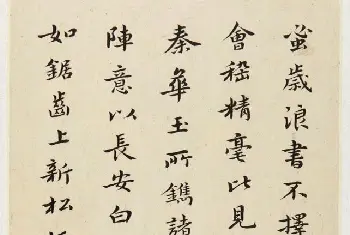 蚤歲浪書不擇
會稽精毫此見
秦華玉所鐫諸
陣意以長安白
如鋸齒上新松